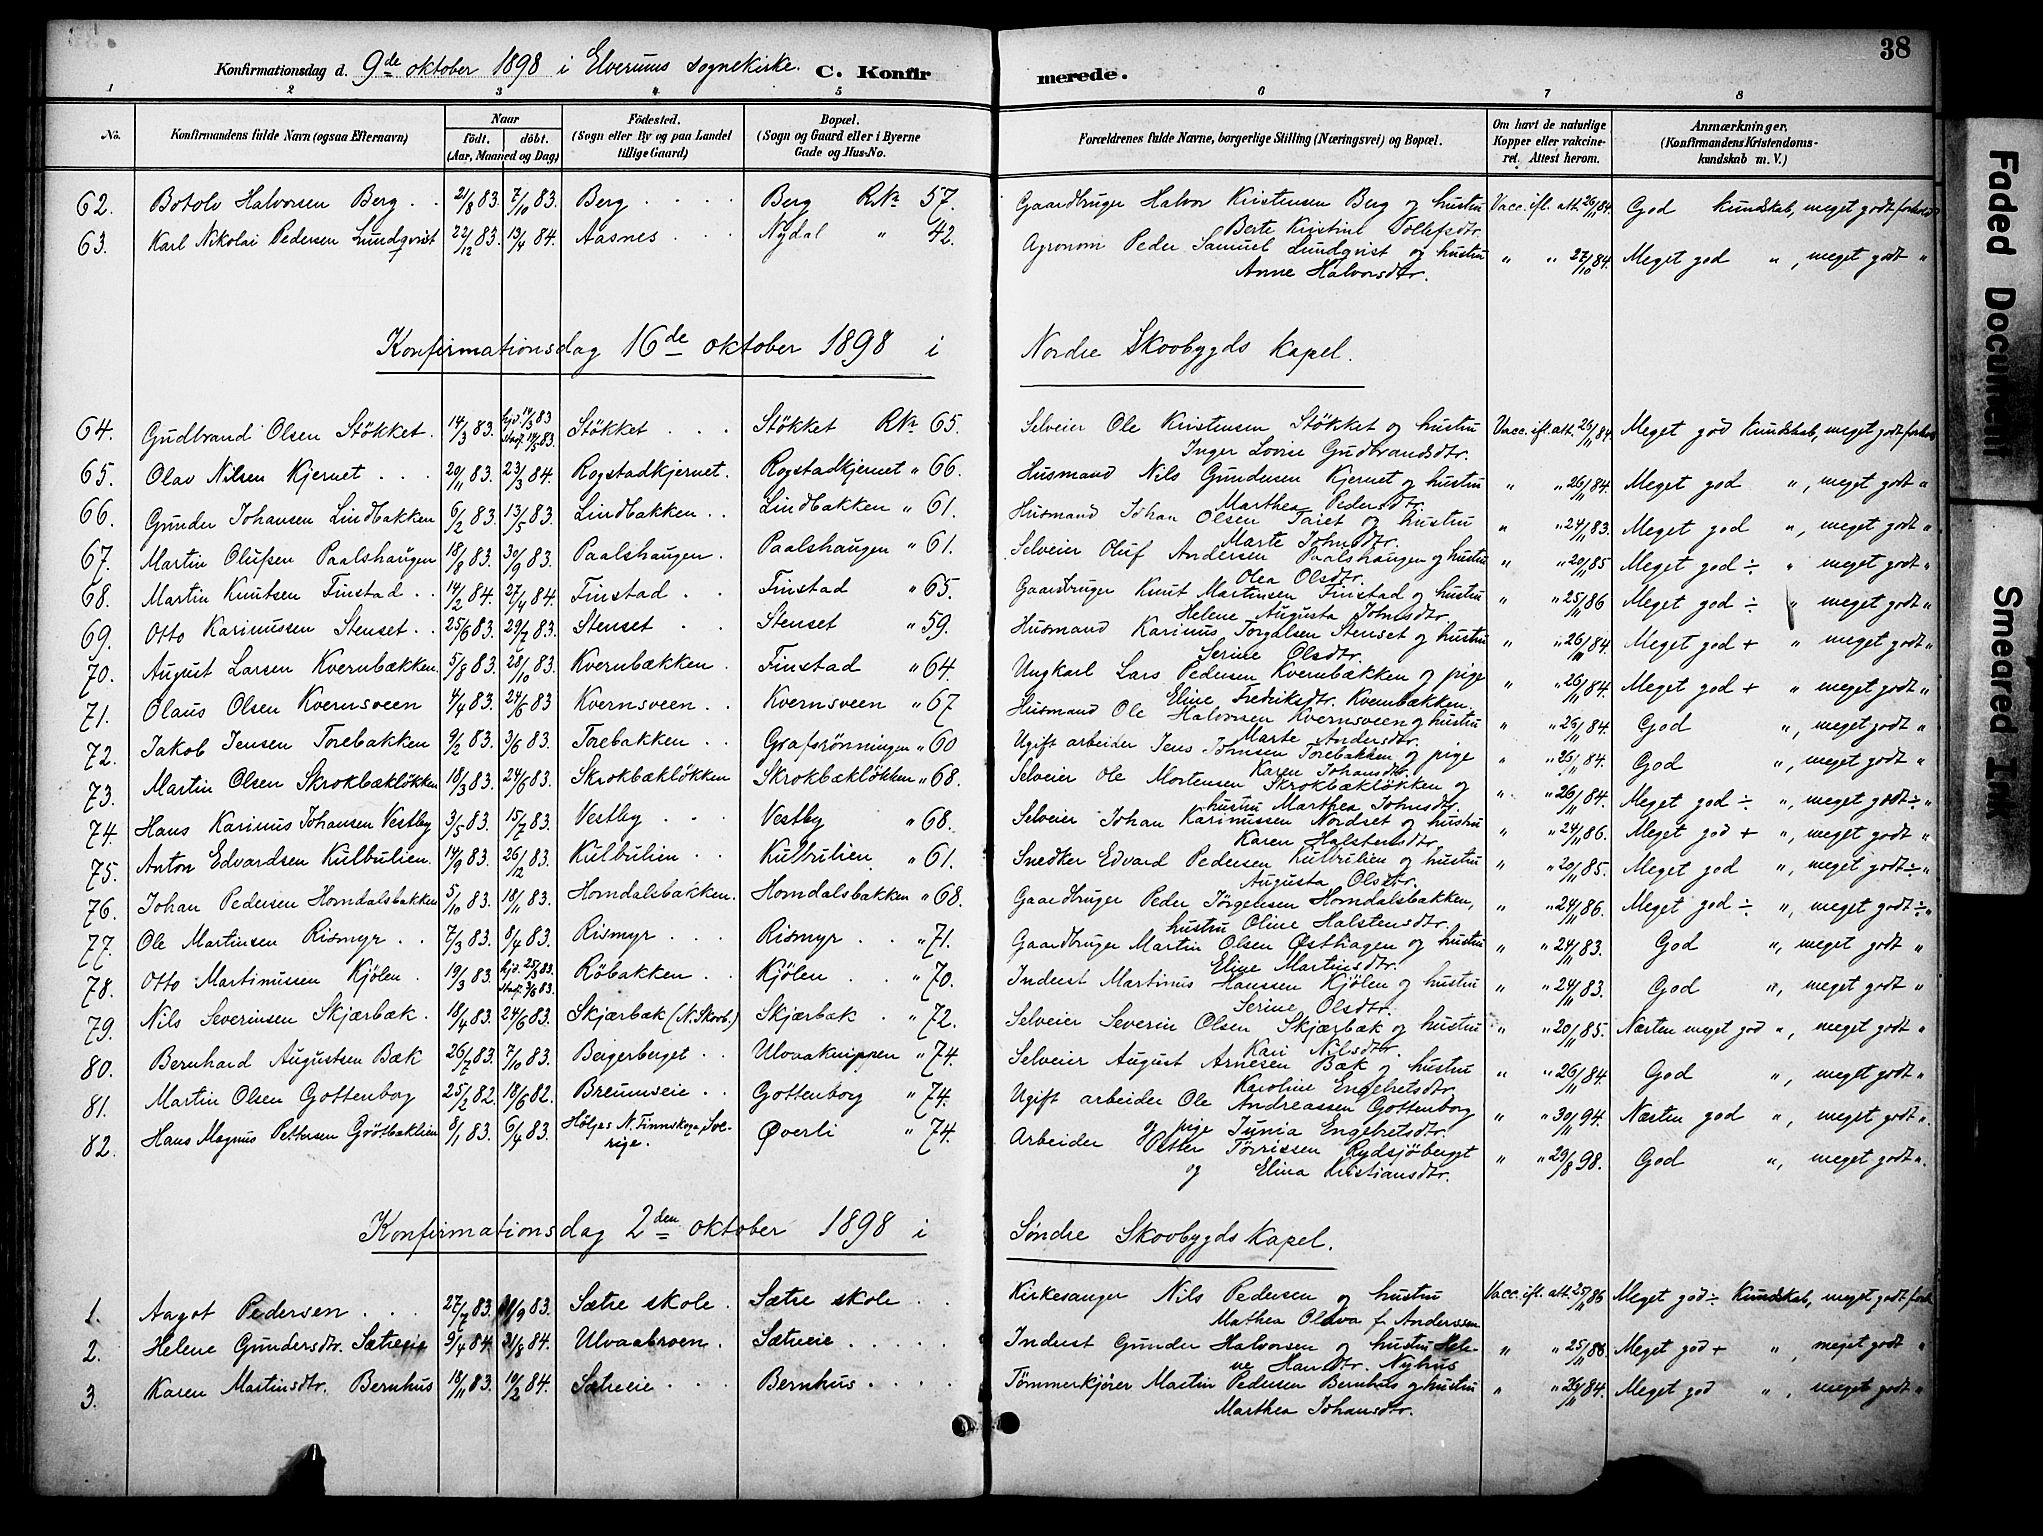 38
Konfirmationsdag d. 9de oktober 1898 i Elverums sognekirke. C. Konfir merede.
1 2 3 4 5 6 7 8
No. Konfirmandens fulde Navn (ogsaa Efternavn) Naar født. døbt. (Aar, Maaned og Dag) Fødested. (Sogn eller By og paa Landet tillige Gaard) Bopæl. (Sogn og Gaard eller i Byerne Gade og Hus-No. Forældrenes fulde Navne, borgerlige Stilling (Næringsvei) og Bopæl. Om havt de naturlige Kopper eller vakcineret. Attest herom. Anmærkninger. (Konfirmandens Kristendomskundskab m. V.)
62. Botolv Halvorsen Berg . . 21/8 83. 7/10 83. Berg . . . . Berg RNr 57. Gaardbruger Halvor Kristensen Berg og hustru Vacc. ifl. att. 26/11 84. God kundskab, meget godt forhold
Berte Kristine Tollefsdtr.
63. Karl Nikolai Pedersen Lundqvist 22/12 83. 13/4 84. Aasnes . . . Nydal " 42. Agronom Peder Samuel Lundqvist og hustru " " 27/10 84. Meget god ", meget godt "
Anne Halvorsdtr.
Konfirmationsdag 16de oktober 1898 i Nordre Skovbygds kapel.
64. Gudbrand Olsen Støkket. 14/3 83. hjd. 14/3 83 Stadf. 14/5 83. Støkket . . Støkket RNr 65. Selveier Ole Kristensen Støkket og hustru Vacc. ifl. att. 26/11 84. Meget god kundskab, meget godt forhold
Inger Lovise Gudbrandsdtr.
65. Olav Nilsen Kjernet . . . 20/11 83. 23/3 84. Rogstadkjernet. Rogstadkjernet " 66. Husmand Nils Gundersen Kjernet og hustru " " 26/11 84. Meget god ", meget godt "
Marthea Pedersdtr.
66. Gunder Johansen Lindbakken 6/2 83. 13/5 83. Lindbakken . . Lindbakken " 61. Husmand Johan Olsen Taret og hustru " " 24/11 83. Meget god ", meget godt "
Marte Johnsdtr.
67. Martin Olufsen Paalshaugen 18/8 83. 30/9 83. Paalshaugen . Paalshaugen " 61. Selveier Oluf Andersen Paalshaugen og hustru " " 20/11 85 Meget god ÷ " meget godt "
Olea Olsdtr.
68. Martin Knutsen Finstad . . 14/2 84. 27/4 84. Finstad . . Finstad " 65. Gaardbruger Knut Martinsen Finstad og hustru " " 25/11 86 Meget god ÷ " meget godt "
Helene Augusta Johnsdtr.
69. Otto Karinussen Stenset . . 25/6 83. 29/7 83. Stenset . . Stenset " 59. Husmand Karinus Torgalsen Stenset og hustru " " 26/11 84. Meget god + " meget godt "
Serine Olsdtr.
70. August Larsen Kvernbækken. 5/8 83. 28/10 83. Kvernbækken. Finstad " 64. Ungkarl Lars Pedersen Kvernbækken og pige " " 26/11 84. Meget god + " meget godt "
Eline Fredriksdtr. Kvernbækken.
71. Olaus Olsen Kvernsveen 4/4 83. 24/6 83 Kvernsveen . . Kvernsveen " 67 Husmand Ole Halvorsen Kvernsveen og hustru " " 26/11 84. God ", meget godt "
Marte Andersdtr.
72. Jakob Jensen Torebakken 9/2 83. 3/6 83. Torebakken . . Grafsrønningen " 60 Ugift arbeider Jens Jonsen Torebakken og pige " " 26/11 84. God ", meget godt "
Karen Johansdtr.
73. Martin Olsen Skrokbækløkken 18/3 83. 24/6 83. Skrokbækløkken Skrokbækløkken " 68. Selveier Ole Mortensen Skrokbækløkken og " " 26/11 84. Meget god ÷ ", meget godt ÷ "
hustru Marthea Johnsdtr.
74. Hans Karinus Johansen Vestby 3/5 83. 15/7 83. Vestby . . . Vestby " 68. Selveier Johan Karinussen Nordset og hustru " " 24/11 86. Meget god + ", meget godt "
Karen Halstensdtr.
75. Anton Edvardsen Kulbulien. 14/9 83. 26/12 83. Kulbulien . . Kulbulien " 61. Snedker Edvard Pedersen Kulbulien og hustru " " 20/11 85. Meget god ", meget godt ÷ "
Augusta Olsdtr.
76. Johan Pedersen Homdalsbakken 5/10 83. 18/11 83. Homdalsbakken. Homdalsbakken " 68. Gaardbruger Peder Jørgensen Homdalsbakken, " " 24/11 86. Meget god ÷ ", meget godt ÷ "
hustru Oline Halstensdtr.
77. Ole Martinsen Rismyr . . 7/3 83. 8/4 83. Rismyr . . . Rismyr . . " 71. Gaardbruger Martin Olsen Østhagen og hustru " " 24/11 83. God ", meget godt "
Eline Martinsdtr.
78. Otto Martinussen Kjølen . 19/3 83. hjd. 25/3 83. Stadf. 3/6 83. Røbakken . . Kjølen . . " 70. Inderst Martinus Hanssen Kjølen og hustru " " 24/11 83. God ", meget godt "
Serine Olsdtr.
79. Nils Severinsen Skjærbæk. 18/4 83. 24/6 83. Skjærbæk (N. Skovb.) Skjærbæk . " 72. Selveier Severin Olsen Skjærbæk og hustru " " 20/11 85. Næsten meget god ", meget godt "
Kari Nilsdtr.
80. Bernhard Augustsen Bæk 26/7 83. 7/10 83. Beigerberget . . Ulvaaknippen " 74. Selveier August Arnesen Bæk og hustru " " 26/11 84. God ", meget godt "
Karoline Engebretsdtr.
81. Martin Olsen Gottenborg 25/2 82. 18/6 82. Breumseie . . Gottenborg " 74. Ugift arbeider Ole Andreassen Gottenborg " " 30/11 94. Næsten god ", meget godt "
og pige Junia Engebretsdtr.
82. Hans Magnus Pettersen Grøtbaklien 8/1 83. 6/4 83. Höljes N. Finnskoga, Sverige. Øverli " 74. Arbeider Petter Törrissen Rydsjøberget " " 29/8 98. God ", meget godt "
og Elina Kristiansdtr.
Konfirmationsdag 2den oktober 1898 i Søndre Skovbygds kapel.
1. Aagot Pedersen . . . 27/7 83. /9 83. Sætre skole . Sætre skole . . Kirkesanger Nils Pedersen og hustru Vacc. ifl. att. 25/11 86 Meget god ÷ kundskab, meget godt forh
Mathea Olava f. Anderssen
2. Helene Gundersdtr. Sætreeie 9/4 84. 31/8 84. Ulvaabroen . Sætreeie . . . . . Inderst Gunder Halvorsen og hustru Hele- " " 25/11 86. Meget god + ", meget godt "
ne Hansdtr. Nyhus
3. Karen Martinsdtr. Bernhus 18/11 83. 10/2 84. Sætreeie . . . Bernhus . . . . Tømmerkjører Martin Pedersen Bernhus og hustru " " 26/11 84. Meget god ", meget godt "
Marthea Johansdtr.
Faded Document
Smeared Ink